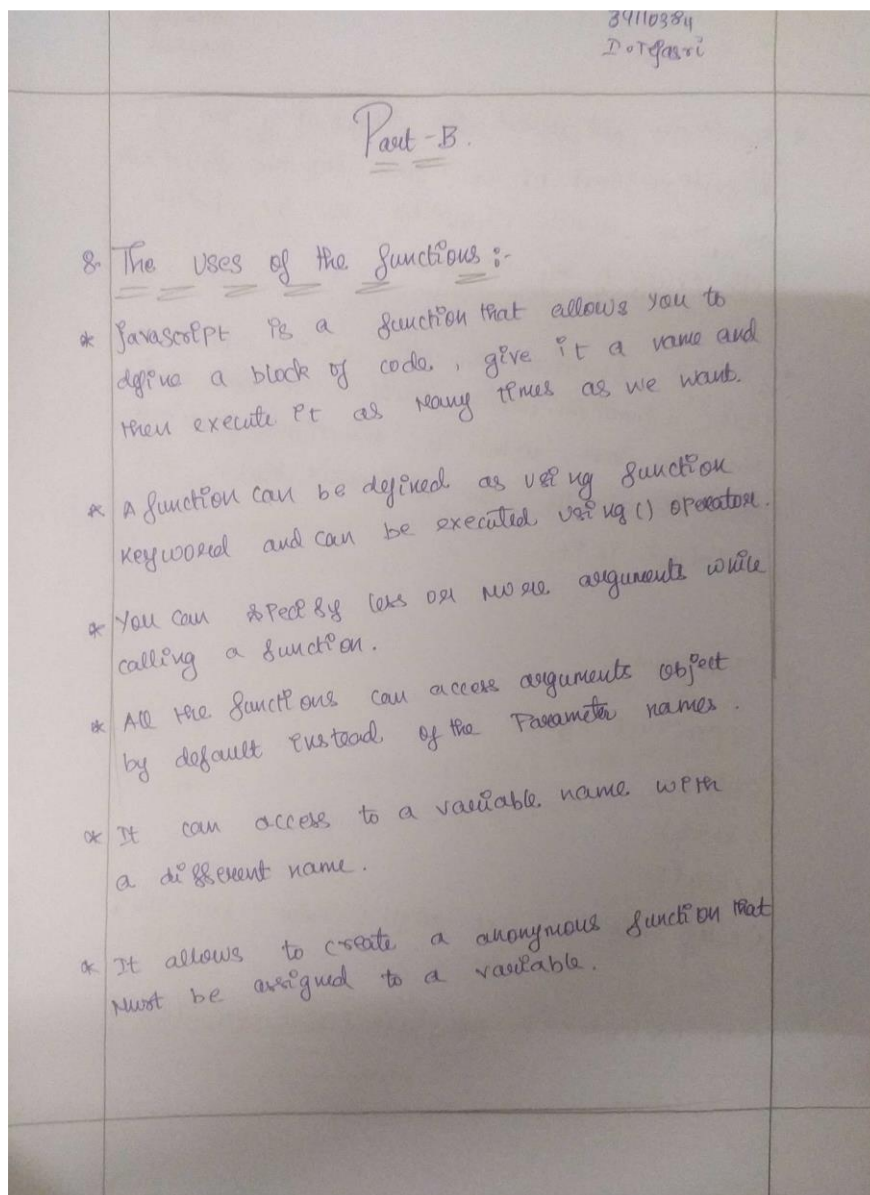 39110384
D.Tejasri
Part-B.
8. The uses of the functions:-
* Javascript is a function that allows you to
define a block of code, give it a name and
then execute it as many times as we want.
* A function can be defined as using function
keyword and can be executed using () operator.
* You can specify less or more arguments while
calling a function.
* All the functions can access arguments object
by default instead of the Parameter names.
* It can access to a variable name with
a different name.
* It allows to create a anonymous function that
must be assigned to a variable.